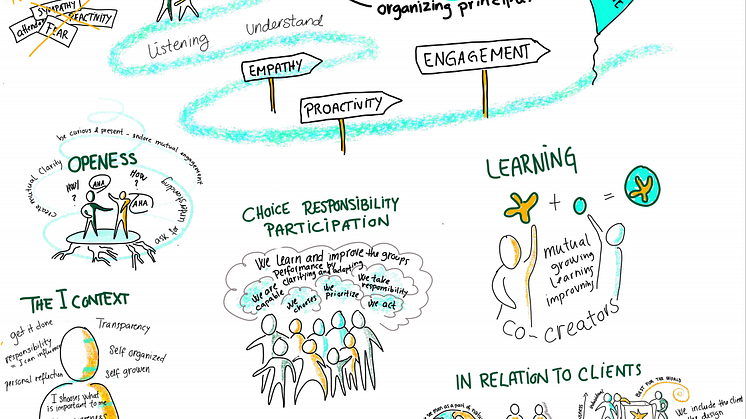 SYMPATHY
REACTIVITY
attendance
FEAR
organizing principal
Listening
Understand
EMPATHY
PROACTIVITY
ENGAGEMENT
be curious & present - endore mutual engagement
create mutual Clarity
ask for understanding
OPENESS
HOW?
AHA
HOW?
AHA
CHOICE RESPONSIBILITY
PARTICIPATION
We learn and improve the groups
performance by
clarifying and adapting
We are
capable
We
chooses
We
prioritize
We take
responsibility
We act
LEARNING
+
=
mutual
growing
learning
improving
co-creators
THE I CONTEXT
get it done
responsibility
= I can influence
personal reflection
Transparency
Self organized
Self grown
I chooses what
is important to me
IN RELATION TO CLIENTS
BEST FOR THE WORLD
We include the client
design